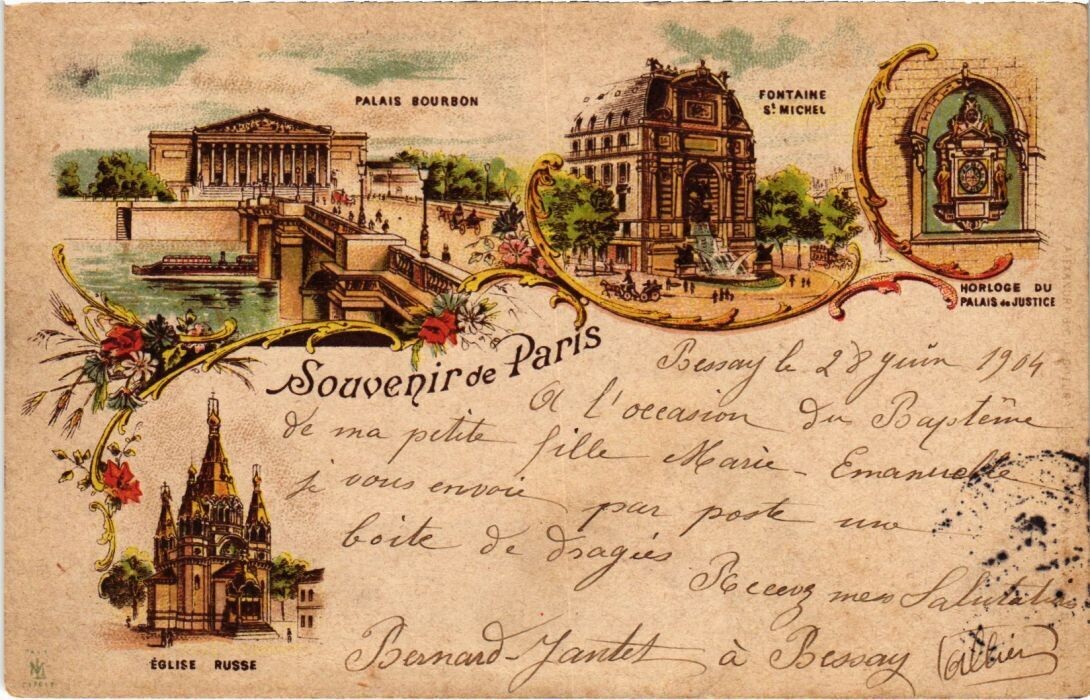 PALAIS BOURBON
FONTAINE
St MICHEL
HORLOGE DU
PALAIS de JUSTICE
Souvenir de Paris
Bessay le 28 juin 1904
A l'occasion du Baptême
de ma petite fille Marie-Emanuelle
je vous envoie par poste une
boite de dragées
Recevez mes Salutations
Bernard-Jantet à Bessay (Allier)
ÉGLISE RUSSE